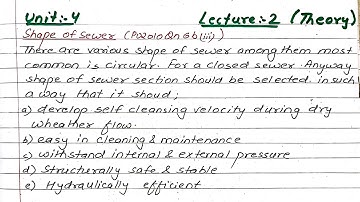 Unit:-4 Lecture:-2 (Theory)
Shape of Sewer (PU2010 Qn 6b(iii))
There are various shape of sewer among them most
common is circular. For a closed sewer. Anyway
shape of sewer section should be selected in such
a way that it shoud;
a) develop self cleansing velocity during dry
wheather flow.
b) easy in cleaning & maintenance
c) withstand internal & external pressure
d) Structurally safe & stable
e) Hydraulically efficient